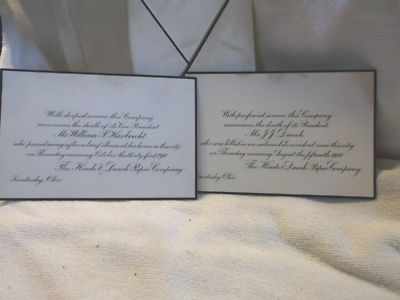 With deepest sorrow this Company
announces the death of its Vice President
Mr. William F. Harbrecht
who passed away after a brief illness at his home in this city
on Thursday morning October the thirty-first
The Hinde & Dauch Paper Company
Sandusky, Ohio
With profound sorrow this Company
announces the death of its President,
Mr. J. J. Dauch
who was killed in an automobile accident near this city
on Thursday morning, August the fifteenth, 1918
The Hinde & Dauch Paper Company
Sandusky, Ohio